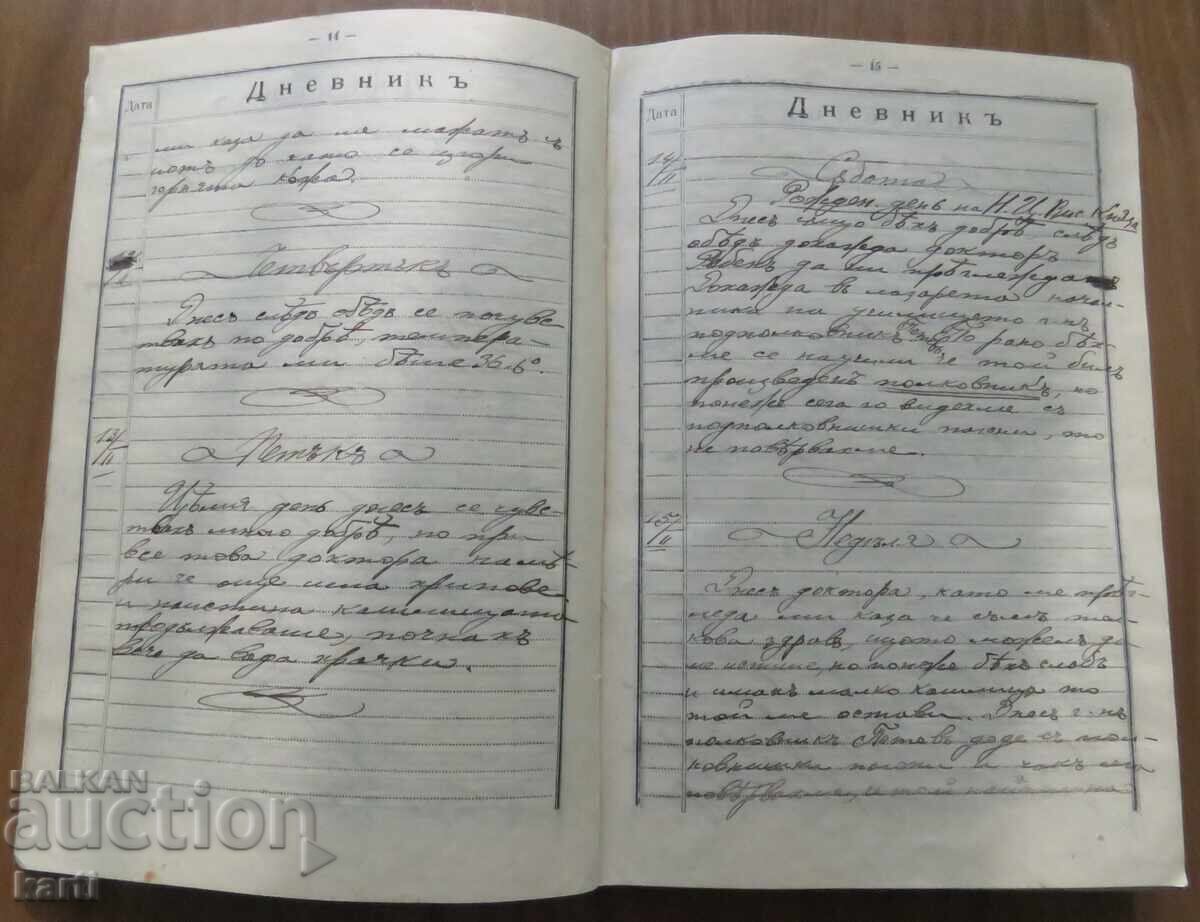 — 14 —
Дата
Дневникъ
ми каза да ня мафатъ съ
иотъ о като се изгори
горнята кожа.
12/
Четвертъкъ
Днесъ слѣдъ обѣдъ се почувс-
твахъ по добрѣ, темпера-
турата ми бѣше 36.6°.
13/II
Петъкъ
Цѣлия день днесъ се чувс-
твахъ много добрѣ, но при
все това доктора намѣ-
ри че още има хрипове
и наистина кашлицата
продължаваше, почнахъ
вече да вадя храчки.
— 15 —
Дата
Дневникъ
14/II
Събота
Рожден. день на Н. Ц. Вис. Княза
Днесъ също бѣхъ добрѣ слѣдъ
обѣдъ дохожда докторъ
да ни прѣглежда
Дохожда въ лазарета начал-
ника на училището г-нъ
подполковникъ По рано бѣх-
ме се научили че той билъ
произведенъ полковникъ, но
понеже сега го видехме съ
подполковнишки пагони, то
не повѣрвахме.
15/II
Недѣля
Днесъ доктора, като ме прѣг-
леда ми каза че съмъ тол-
кова здравъ, щото можелъ да
ме изпише, но понеже бѣхъ слабъ
и имахъ малко кашлица то
той ме остави. Днесъ г-нъ
полковникъ Петовъ доде съ пол-
ковнишки пагони и чакъ сега
повѣрвахме, че той
BALKAN
auction
karti